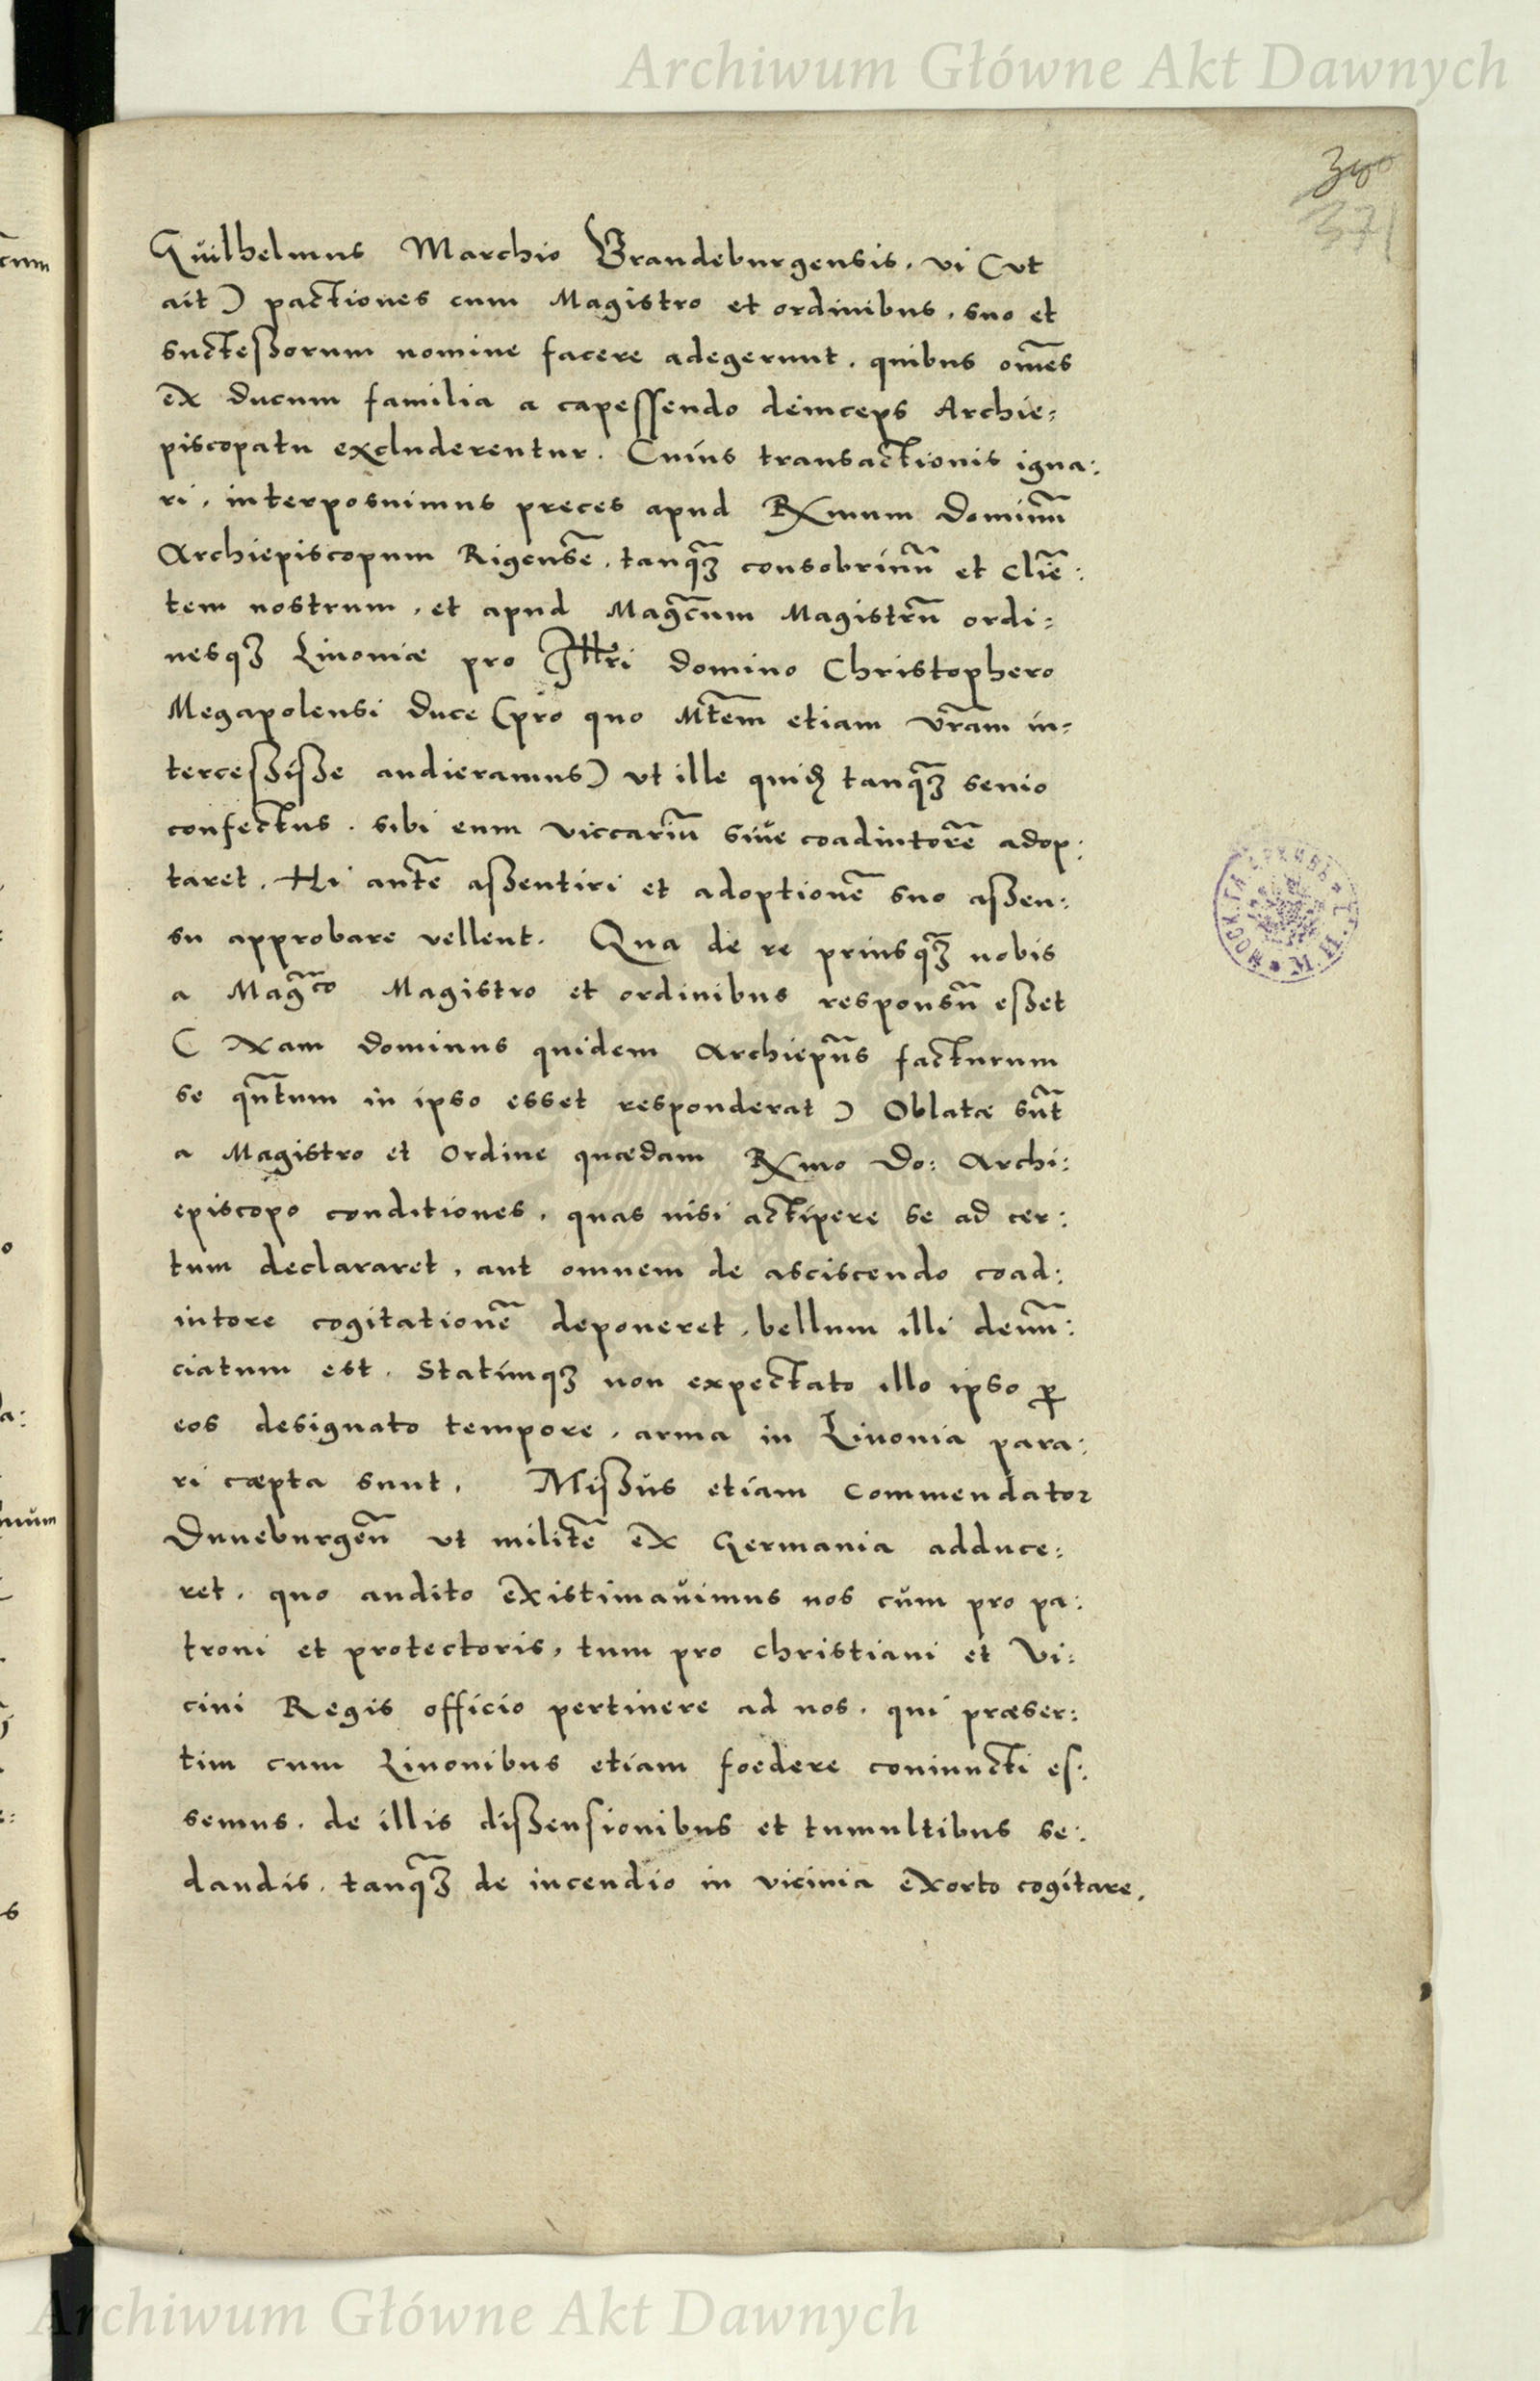 Archiwum Główne Akt Dawnych
371
Guilhelmus Marchio Brandeburgensis, vi (vt
ait) pactiones cum Magistro et ordinibus, suo et
successorum nomine facere adegerunt, quibus om̃es
ex ducum familia a capessendo deinceps Archie:
piscopatu excluderentur. Cuius transactionis igna:
ri, interposuimus preces apud Rx̃mum Dominũ
Archiepiscopum Rigensẽ, tanq̃ꝫ consobrinũ et Cliẽ:
tem nostrum, et apud Mag̃cum Magistrũ ordi:
nesqꝫ Liuoniæ pro Ill̃ri domino Christophero
Megapolensi duce (pro quo Mt̃em etiam vr̃am in:
tercessisse audieramus) vt ille quidẽ tanq̃ꝫ senio
confectus, sibi eum viccariũ siue coadiutorẽ adop:
taret, Hi autẽ assentiri et adoptionẽ suo assen:
su approbare vellent. Qua de re priusq̃ꝫ nobis
a Mag̃co Magistro et ordinibus responsũ esset
( Nam dominus quidem Archiepũs facturum
se qũtum in ipso esset responderat ) Oblatæ sũt
a Magistro et Ordine quædam Rx̃mo Do: Archi:
episcopo conditiones, quas nisi accipere se ad cer:
tum declararet, aut omnem de asciscendo coad:
iutore cogitationẽ deponeret, bellum illi denũ:
ciatum est. Statimqꝫ non expectato illo ipso ꝑ
eos designato tempore, arma in Liuonia para:
ri cæpta sunt. Missus etiam Commendator
Duneburgeñ vt militẽ ex Germania adduce:
ret, quo audito existimauimus nos cum pro pa:
troni et protectoris, tum pro christiani et Vi:
cini Regis officio pertinere ad nos, qui præser:
tim cum Liuonibus etiam foedere coniuncti es:
semus, de illis dissensionibus et tumultibus se:
dandis, tanq̃ꝫ de incendio in vicinia exorto cogitare,
Archiwum Główne Akt Dawnych